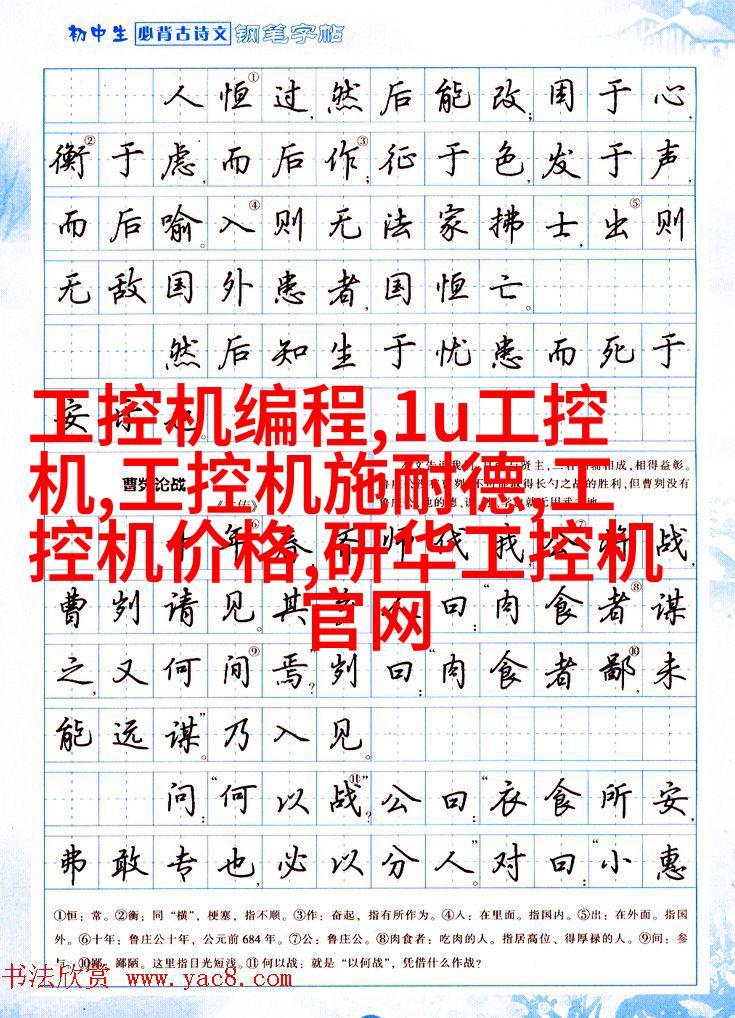 初中生 必背古诗文 钢笔字帖
人恒①过,然后能改;困于心,
衡②于虑,而后作③;征于色,发于声,
而后喻。入④则无法家拂士,出⑤则
无敌国外患者,国恒亡。
然后知生于忧患而死于
工控机编程,1u工控
机,工控机施耐德,工
控机价格,研华工控机
官网
曹刿论战
相成,相得益彰。
得长勺之战的胜利,但曹刿没有
战,
曹刿请见。其 曰:“肉食者⑧谋
之,又何间⑨焉?”刿曰:“肉食者鄙⑩,未
能远谋。”乃入见。
问:“何以战⑪?”公曰:“衣食所安,
弗敢专也,必以分人。”对曰:“小惠
①恒:常。②衡:同“横”,梗塞,指不顺。③作:奋起,指有所作为。④入:在里面。指国内。⑤出:在外面。指国
外。⑥十年:鲁庄公十年,公元前684年。⑦公:鲁庄公。⑧肉食者:吃肉的人。指居高位、得厚禄的人。⑨间:参
与。⑩鄙:鄙陋。这里指目光短浅。⑪何以战:就是“以何战”,凭借什么作战?
书法欣赏 www.yac8.com